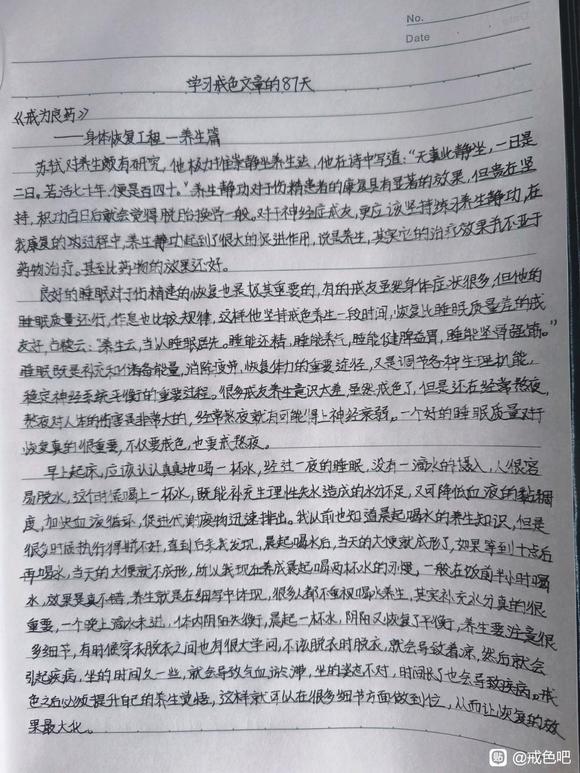 No.
Date
学习戒色文章的87天
《戒为良药》
——身体恢复工程—养生篇
苏轼对养生颇有研究，他极力推崇静坐养生法，他在诗中写道：“无事此静坐，一日是
二日。若活七十年，便是百四十。”养生静功对于伤精患者的康复具有显著的效果，但贵在坚
持，积功百日后就会觉得脱胎换骨一般。对于神经症戒友，更应该坚持练习养生静功，在
我康复的过程中，养生静功起到了很大的促进作用，说是养生，其实它的治疗效果并不亚于
药物治疗。甚至比药物的效果还好。
良好的睡眠对于伤精患的恢复也是极其重要的，有的戒友虽然身体症状很多，但他的
睡眠质量还行，作息也比较规律，这样他坚持戒色养生一段时间，恢复比睡眠质量差的戒
友好，古人云：“养生云，当以睡眠居先。睡能还精，睡能养气，睡能健脾益胃，睡能坚骨强筋。”
睡眠既是补充和储备能量，消除疲劳，恢复体力的重要途径，又是调节各种生理机能，
稳定神经系统平衡的重要过程。很多戒友养生意识太差，虽然戒色了，但是还在经常熬夜，
熬夜对人生的伤害是非常大的，经常熬夜就有可能得上神经衰弱。一个好的睡眠质量对于
恢复真的很重要，不仅要戒色，也要戒熬夜。
早上起床，应该认认真真地喝一杯水，经过一夜的睡眠，没有一滴水的摄入，人很容
易脱水，这个时候喝上一杯水，既能补充生理性失水造成的水分不足，又可降低血液的黏稠
度，加快血液循环，促进代谢废物迅速排出。我以前也知道晨起喝水的养生知识，但是
很多时候执行得并不好，直到后来我发现，晨起喝水后，当天的大便就成形了，如果等到十点后
再喝水，当天的大便就不成形，所以我现在养成晨起喝两杯水的习惯，一般在饭前半小时喝
水，效果是真不错，养生就是在细写中体现，很多人都不重视喝水养生，其实补充水分真的很
重要，一个晚上滴水未进，体内阴阳失衡，晨起一杯水，阴阳又恢复了平衡，养生要注意很
多细节，有时候穿衣脱衣之间也有很大学问，不该脱衣时脱衣，就会导致着凉，然后就会
引起疾病，坐的时间久一些，就会导致气血瘀滞，坐的姿态不对，时间长了也会导致疾病。戒
色之后必须提升自己的养生觉悟，这样就可以在很多细节方面做到位，从而让恢复的效
果最大化。
贴 @戒色吧